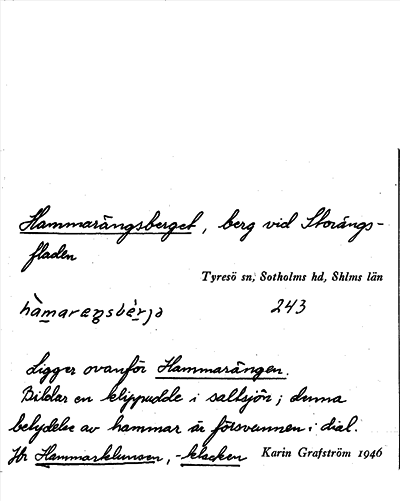 Hammarängsberget, berg vid Storängs-
fladen
Tyresö sn, Sotholms hd, Shlms län
hàmaræŋsbær̀jə 243
Ligger ovanför Hammarängen.
Bildar en klippudde i saltsjön; denna
betydelse av hammar är försvunnen i dial.
Jfr Hammarklumsen, -klacken Karin Grafström 1946